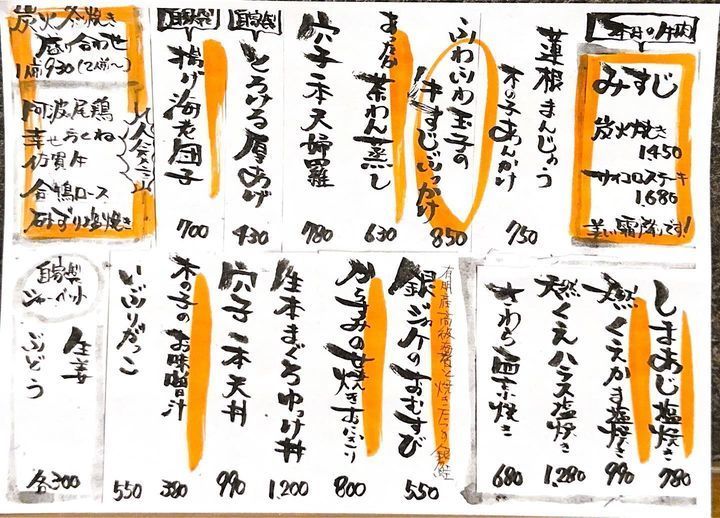 本日の牛肉
みすじ
炭火焼き
1450
サイコロステーキ
1,680
美い霜降です!
蓮根まんじゅう
木の子あんかけ
750
ふわふわ玉子の
牛すじぶっかけ
850
茶わん蒸し
630
穴子一本天婦羅
780
自家製
とろける厚あげ
430
自家製
揚げ海老団子
700
炭火焼き
盛り合わせ
1人前930(2人前~)
阿波尾鶏
幸せつくね
佐賀牛
合鴨ロース
砂ずり塩焼き
しまあじ塩焼き
780
天然くえかま塩焼き
990
天然くえハラス塩焼き
1,280
さわら酒蒸焼き
680
有明産高級海苔と焼きたての銀鮭
銀ジャケのおむすび
550
からすみのせ焼きおにぎり
800
生本まぐろゆっけ丼
1,200
穴子一本天丼
990
木の子のお味噌汁
380
いぶりがっこ
550
自家製
シャーベット
生姜
ぶどう
各300